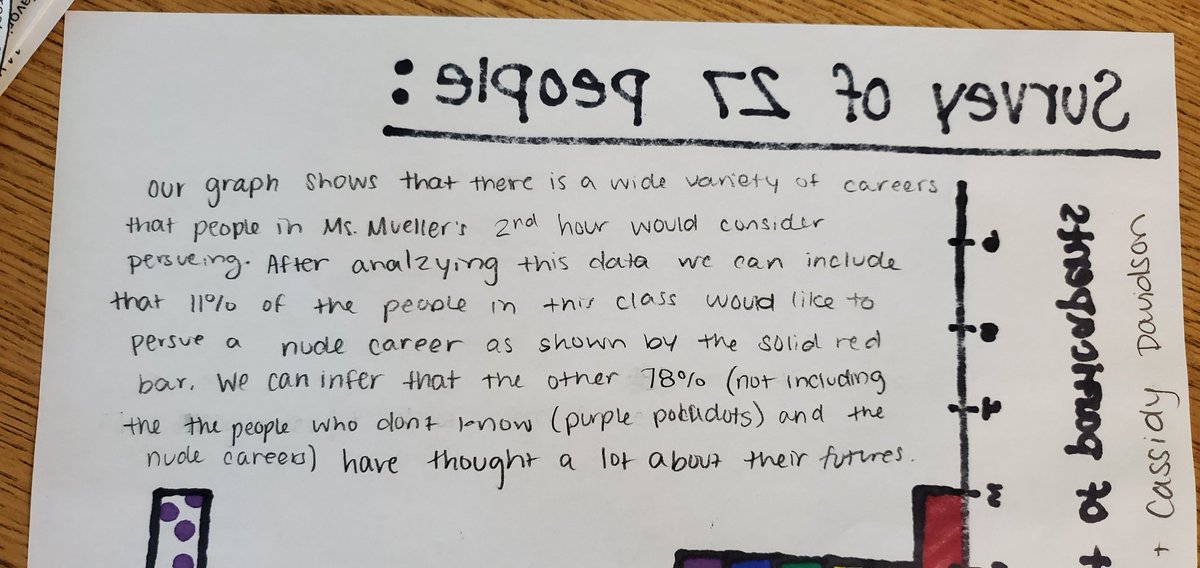 Survey of 27 people:
our graph shows that there is a wide variety of careers
that people in Ms. Mueller's 2nd hour would consider
persueing. After analzying this data we can include
that 11% of the people in this class would like to
persue a nude career as shown by the solid red
bar. We can infer that the other 78% (not including
the the people who don't know (purple polkadots) and the
nude careers) have thought a lot about their futures.
# of participants
+ Cassidy Davidson